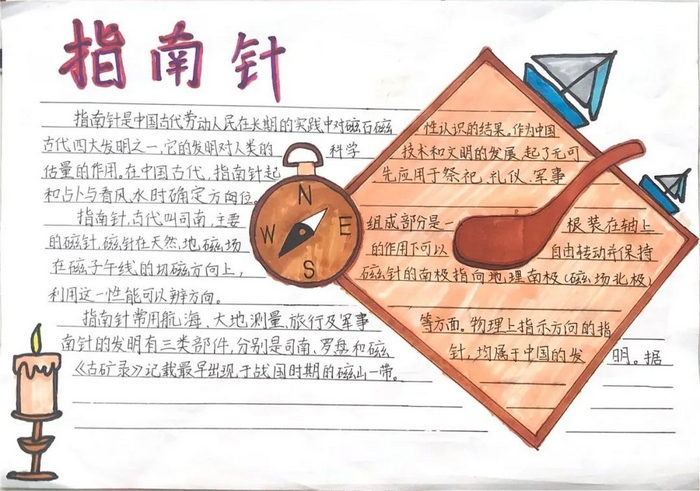 指南针
指南针是中国古代劳动人民在长期的实践中对磁石磁性认识的结果。作为中国
古代四大发明之一,它的发明对人类的科学技术和文明的发展,起了无可
估量的作用。在中国古代,指南针起先应用于祭祀、礼仪、军事
和占卜与看风水时确定方向位。
指南针,古代叫司南,主要组成部分是一根装在轴上
的磁针,磁针在天然地磁场的作用下可以自由转动并保持
在磁子午线的切磁方向上,磁针的南极指向地理南极(磁场北极)
利用这一性能可以辨方向。
指南针常用航海、大地测量、旅行及军事等方面。物理上指示方向的指
南针的发明有三类部件,分别是司南、罗盘和磁针,均属于中国的发明。据
《古矿录》记载最早出现于战国时期的磁山一带。
N
W E
S